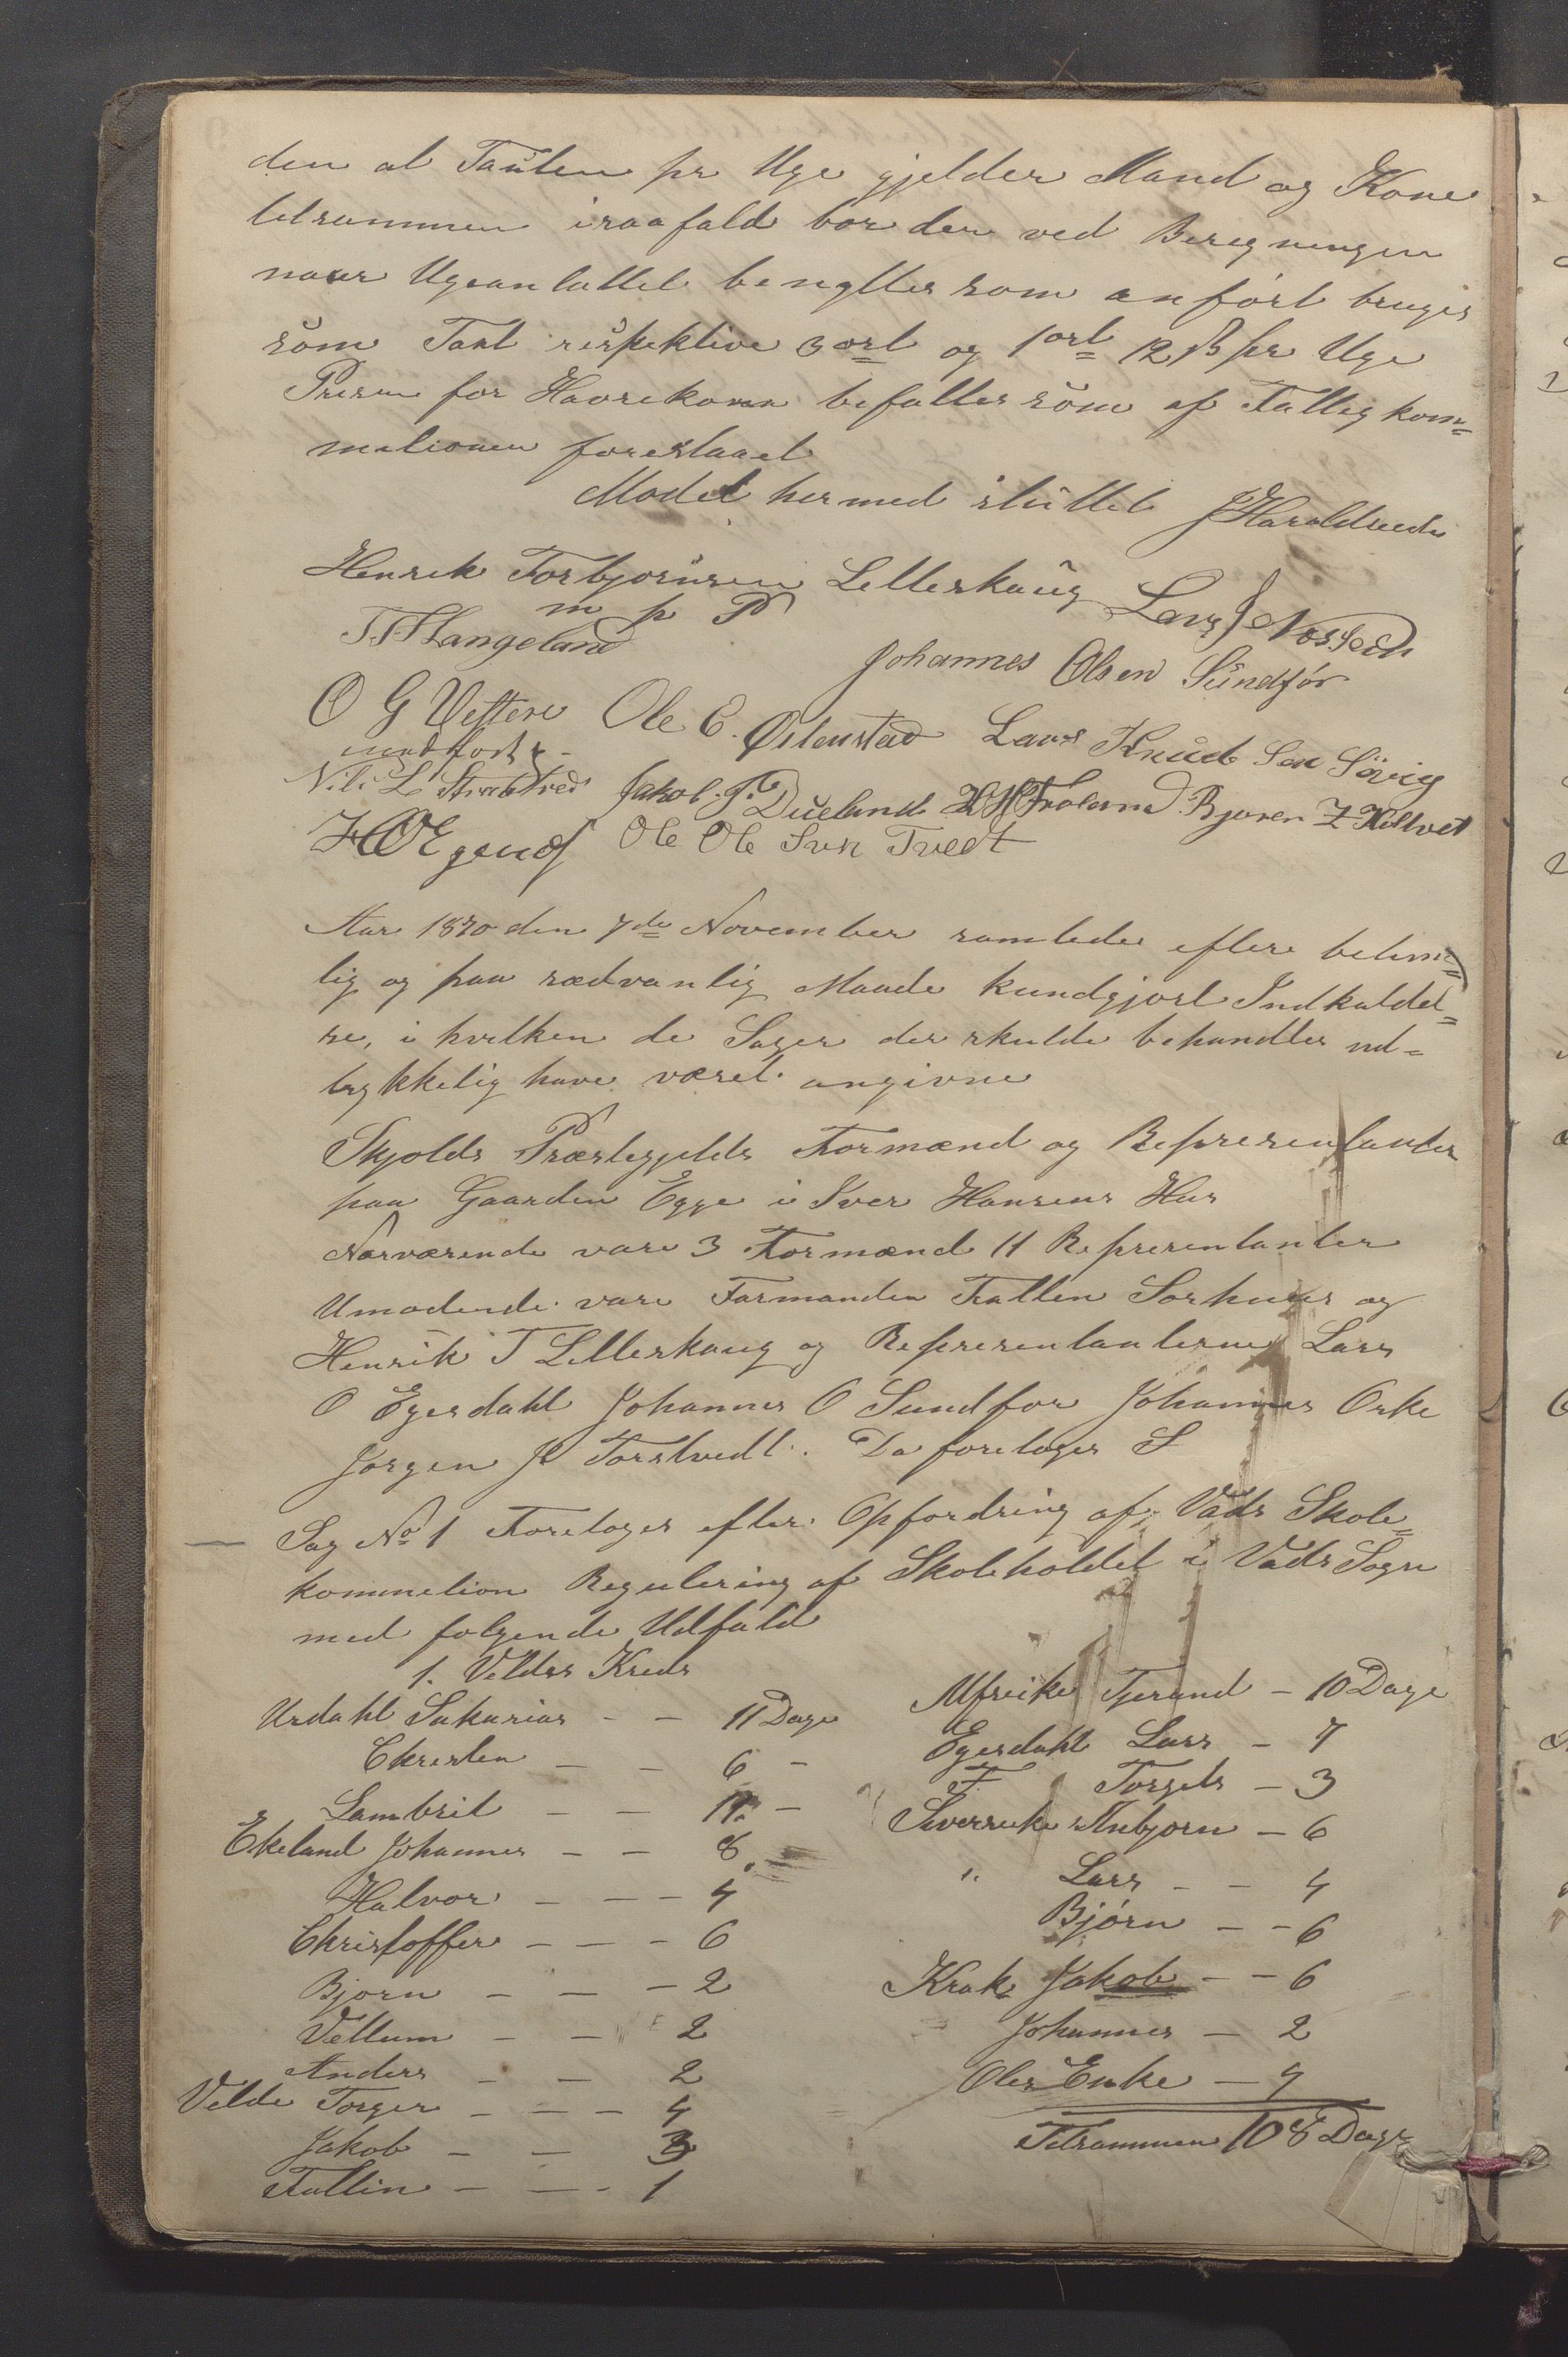 den at Taxten pr Uge gjelder Mand og Kone
tilsammen isaafald bør der ved Beregningen
naar Ugeantallet benyttes som anført bruges
som Taxt respektive 3 ort og 1 ort 12 β pr Uge
Prisen for Havrekorn befattes som af Fattigkom=
misionen foreslaaet
Mødet hermed sluttet JHaraldseide
Henrik Torbjørnsen Lilleskaug Lars J Nossedn
m p P
T. T. Langeland
Johannes Olsen Sundfør
O G Vettere Ole E. Østenstad Lars Knud Sen Sövig
med ført p.
Nils L Jakob. J. Dueland H H Frøland Bjøren Z
Ole Ole Svn Tvedt
Aar 1870 den 7de November samledes efter betime=
lig og paa sædvanlig Maade kundgjort Indkaldel=
se, i hvilken de Sager der skulde behandles ud=
trykkelig have været angivne
Skjolds Præstegjelds Formænd og Representanter
paa Gaarden Egge i Iver Hansens Hus
Nærværende vare 3 Formænd 11 Representanter
Umødende vare Formanden Tallen Sørhuus og
Henrik T Lilleskaug og Representanterne Lars
O Egesdahl Johannes O Sundfør Johannes Orke
Jørgen Jl Torstvedt. Da foretoges S
Sag No 1 Foretoges efter Opfordring af Vads Skole=
kommetion Regulering af Skoleholdet i Vads Sogn
med følgende Udfald
1. Veldes Kreds
Urdahl Sakarias - - 11 Dage
Christen - - 6 -
Lambrit - - 11 -
Ekeland Johannes - - 8
Halvor - - - 4
Christoffer - - - 6
Bjørn - - - 2
Vellum - - 2
Anders - - 2
Velde Torger - - - 4
Jakob - - 3
Tallin - - - 1
Alfreike Tjerand - 10 Dage
Egesdahl Lars - 7
F. Torgels - 3
Anbjørn - 6
" Lars - - 4
Bjørn - - 6
Krak Jakob - - 6
Johannes - 2
Oles Enke - 4
Tilsammen 108 Dage